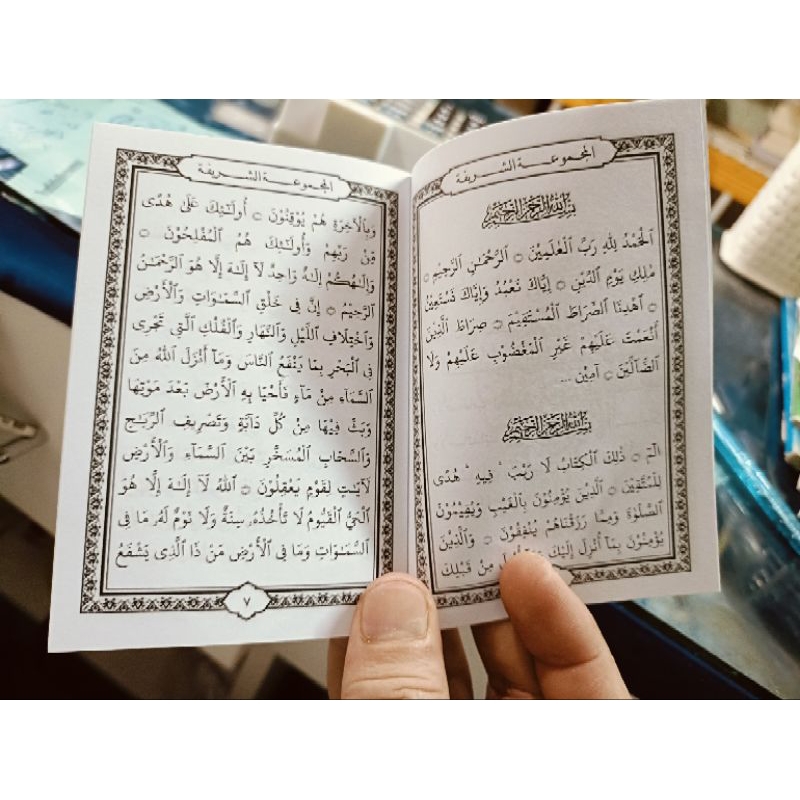 المجموعة الشريفة
بِسْمِ ٱللَّهِ ٱلرَّحْمَٰنِ ٱلرَّحِيمِ
ٱلْحَمْدُ لِلَّهِ رَبِّ ٱلْعَٰلَمِينَ ۝ ٱلرَّحْمَٰنِ ٱلرَّحِيمِ ۝
مَٰلِكِ يَوْمِ ٱلدِّينِ ۝ إِيَّاكَ نَعْبُدُ وَإِيَّاكَ نَسْتَعِينُ
۝ ٱهْدِنَا ٱلصِّرَاطَ ٱلْمُسْتَقِيمَ ۝ صِرَاطَ ٱلَّذِينَ
أَنْعَمْتَ عَلَيْهِمْ غَيْرِ ٱلْمَغْضُوبِ عَلَيْهِمْ وَلَا
ٱلضَّآلِّينَ ۝ آمِيْن ...
بِسْمِ ٱللَّهِ ٱلرَّحْمَٰنِ ٱلرَّحِيمِ
الٓمٓ ۝ ذَٰلِكَ ٱلْكِتَٰبُ لَا رَيْبَ ۛ فِيهِ ۛ هُدًى
لِّلْمُتَّقِينَ ۝ ٱلَّذِينَ يُؤْمِنُونَ بِٱلْغَيْبِ وَيُقِيمُونَ
ٱلصَّلَوٰةَ وَمِمَّا رَزَقْنَٰهُمْ يُنفِقُونَ ۝ وَٱلَّذِينَ
يُؤْمِنُونَ بِمَآ أُنزِلَ إِلَيْكَ مِن قَبْلِكَ
المجموعة الشريفة
وَبِٱلْأٓخِرَةِ هُمْ يُوقِنُونَ ۝ أُو۟لَٰٓئِكَ عَلَىٰ هُدًى
مِّن رَّبِّهِمْ وَأُو۟لَٰٓئِكَ هُمُ ٱلْمُفْلِحُونَ ۝
وَإِلَٰهُكُمْ إِلَٰهٌ وَٰحِدٌ لَّآ إِلَٰهَ إِلَّا هُوَ ٱلرَّحْمَٰنُ
ٱلرَّحِيمُ ۝ إِنَّ فِى خَلْقِ ٱلسَّمَٰوَٰتِ وَٱلْأَرْضِ
وَٱخْتِلَٰفِ ٱلَّيْلِ وَٱلنَّهَارِ وَٱلْفُلْكِ ٱلَّتِى تَجْرِى
فِى ٱلْبَحْرِ بِمَا يَنفَعُ ٱلنَّاسَ وَمَآ أَنزَلَ ٱللَّهُ مِنَ
ٱلسَّمَآءِ مِن مَّآءٍ فَأَحْيَا بِهِ ٱلْأَرْضَ بَعْدَ مَوْتِهَا
وَبَثَّ فِيهَا مِن كُلِّ دَآبَّةٍ وَتَصْرِيفِ ٱلرِّيَٰحِ
وَٱلسَّحَابِ ٱلْمُسَخَّرِ بَيْنَ ٱلسَّمَآءِ وَٱلْأَرْضِ
لَأٓيَٰتٍ لِّقَوْمٍ يَعْقِلُونَ ۝ ٱللَّهُ لَآ إِلَٰهَ إِلَّا هُوَ
ٱلْحَىُّ ٱلْقَيُّومُ لَا تَأْخُذُهُۥ سِنَةٌ وَلَا نَوْمٌ لَّهُۥ مَا فِى
ٱلسَّمَٰوَٰتِ وَمَا فِى ٱلْأَرْضِ مَن ذَا ٱلَّذِى يَشْفَعُ
٧